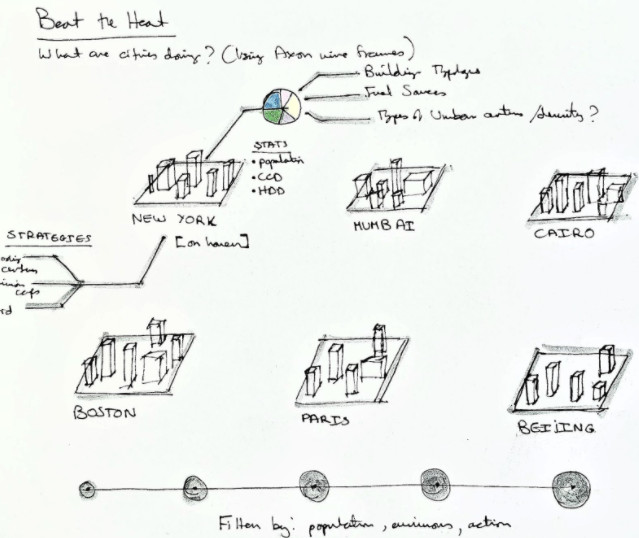 Beat the Heat
What are cities doing? (Using Axon wire frames)
Building Typologies
Fuel Sources
Types of Urban /density?
STATS
• population
• CCD
• HDD
NEW YORK
[on hover]
MUMBAI
CAIRO
STRATEGIES
BOSTON
PARIS
BEIJING
Filter by: population, emissions, action